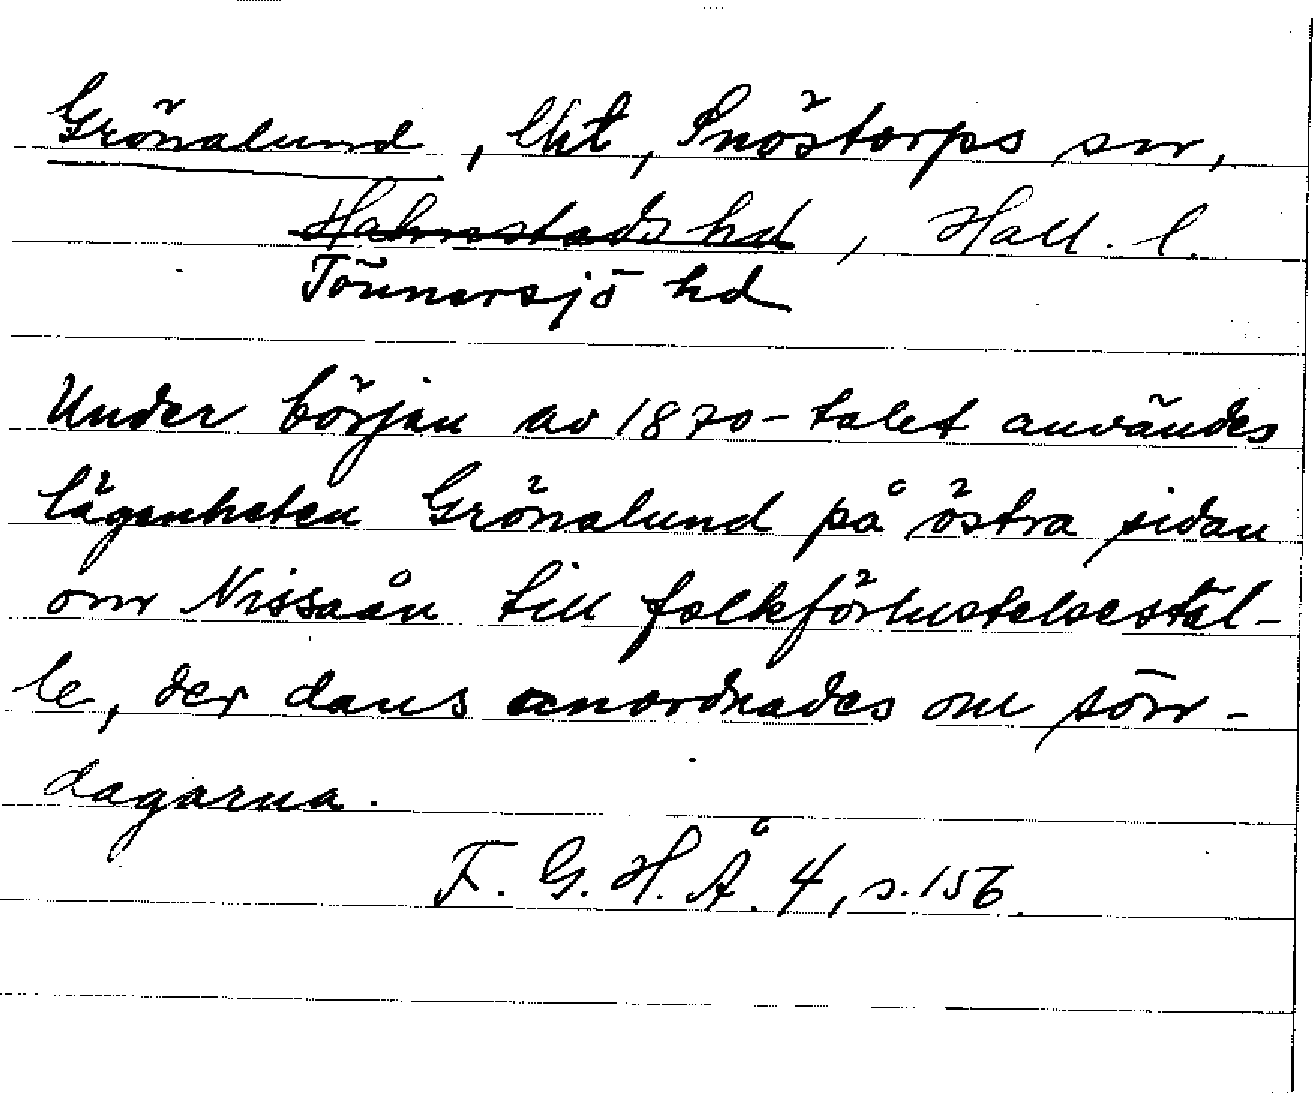 Grönalund, lht, Snöstorps sn,
Halmstads hd, Hall. l.
Tönnersjö hd
Under början av 1870-talet användes
lägenheten Grönalund på östra sidan
om Nissaån till folkförlustelsestäl-
le, der dans anordnades om sön-
dagarna.
F. G. H. Å. 4, s. 156.